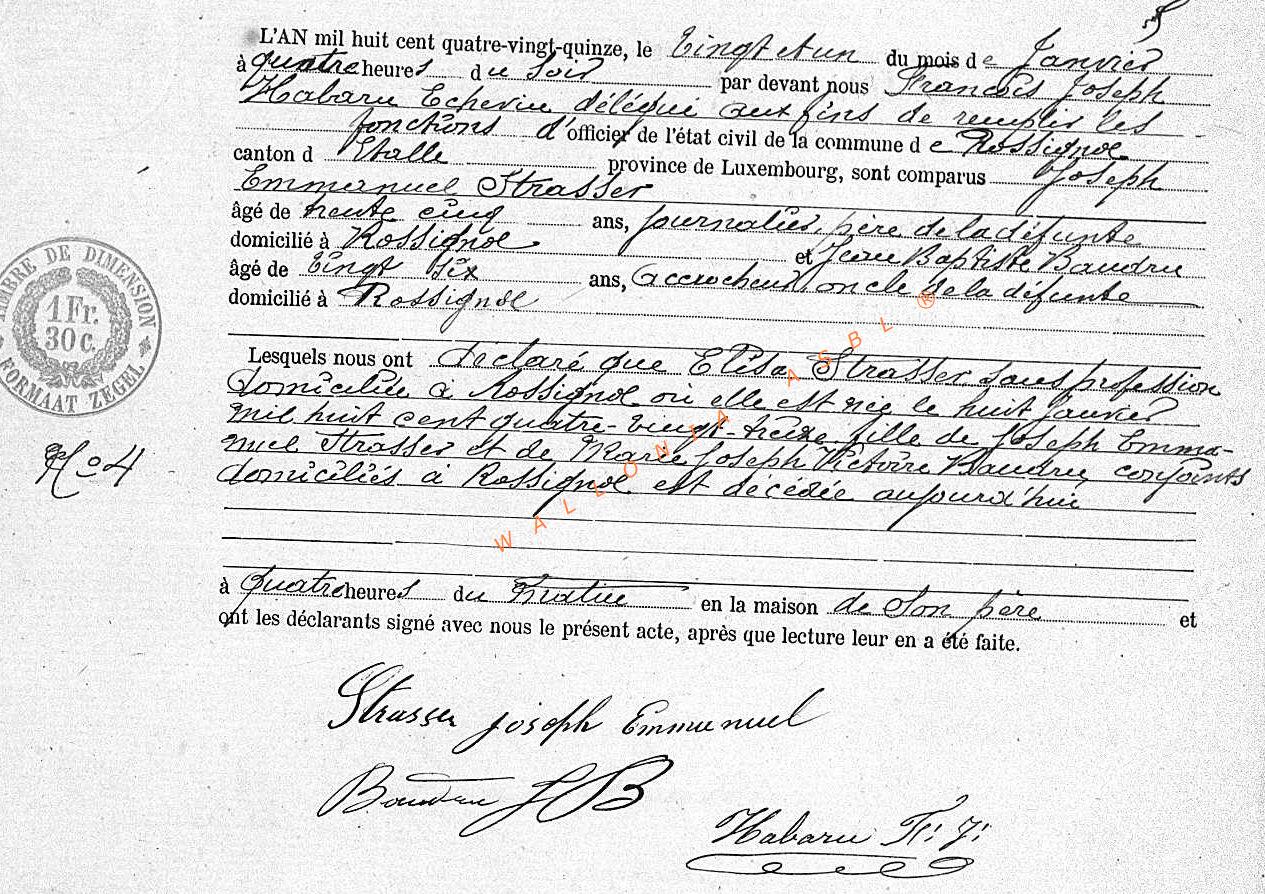 L'AN mil huit cent quatre-vingt-quinze, le Vingt et un du mois de Janvier
à quatre heures du Soir par devant nous François Joseph
Habaru Echevin délégué aux fins de remplir les
fonctions d'officier de l'état civil de la commune de Rossignol
canton d Etalle province de Luxembourg, sont comparus Joseph
Emmanuel Strasser
âgé de trente cinq ans, journalier, père de la défunte
domicilié à Rossignol et Jean Baptiste Baudru
âgé de Vingt Six ans, Accrocheur oncle de la défunte
domicilié à Rossignol
Lesquels nous ont déclaré que Elisa Strasser sans profession
domiciliée à Rossignol où elle est née le huit Janvier
mil huit cent quatre-vingt-treize fille de Joseph Emma-
nuel Strasser et de Marie Joseph Victoire Baudru, conjoints
domiciliés à Rossignol est décédée aujourd'hui
à quatre heures du Matin en la maison de Son père et
ont les déclarants signé avec nous le présent acte, après que lecture leur en a été faite.
Strasser Joseph Emmanuel
Baudru JB
Habaru Fr. J.
No 4
TIMBRE DE DIMENSION
1 Fr.
30 c.
FORMAAT ZEGEL
WALLONIA ASBL ®